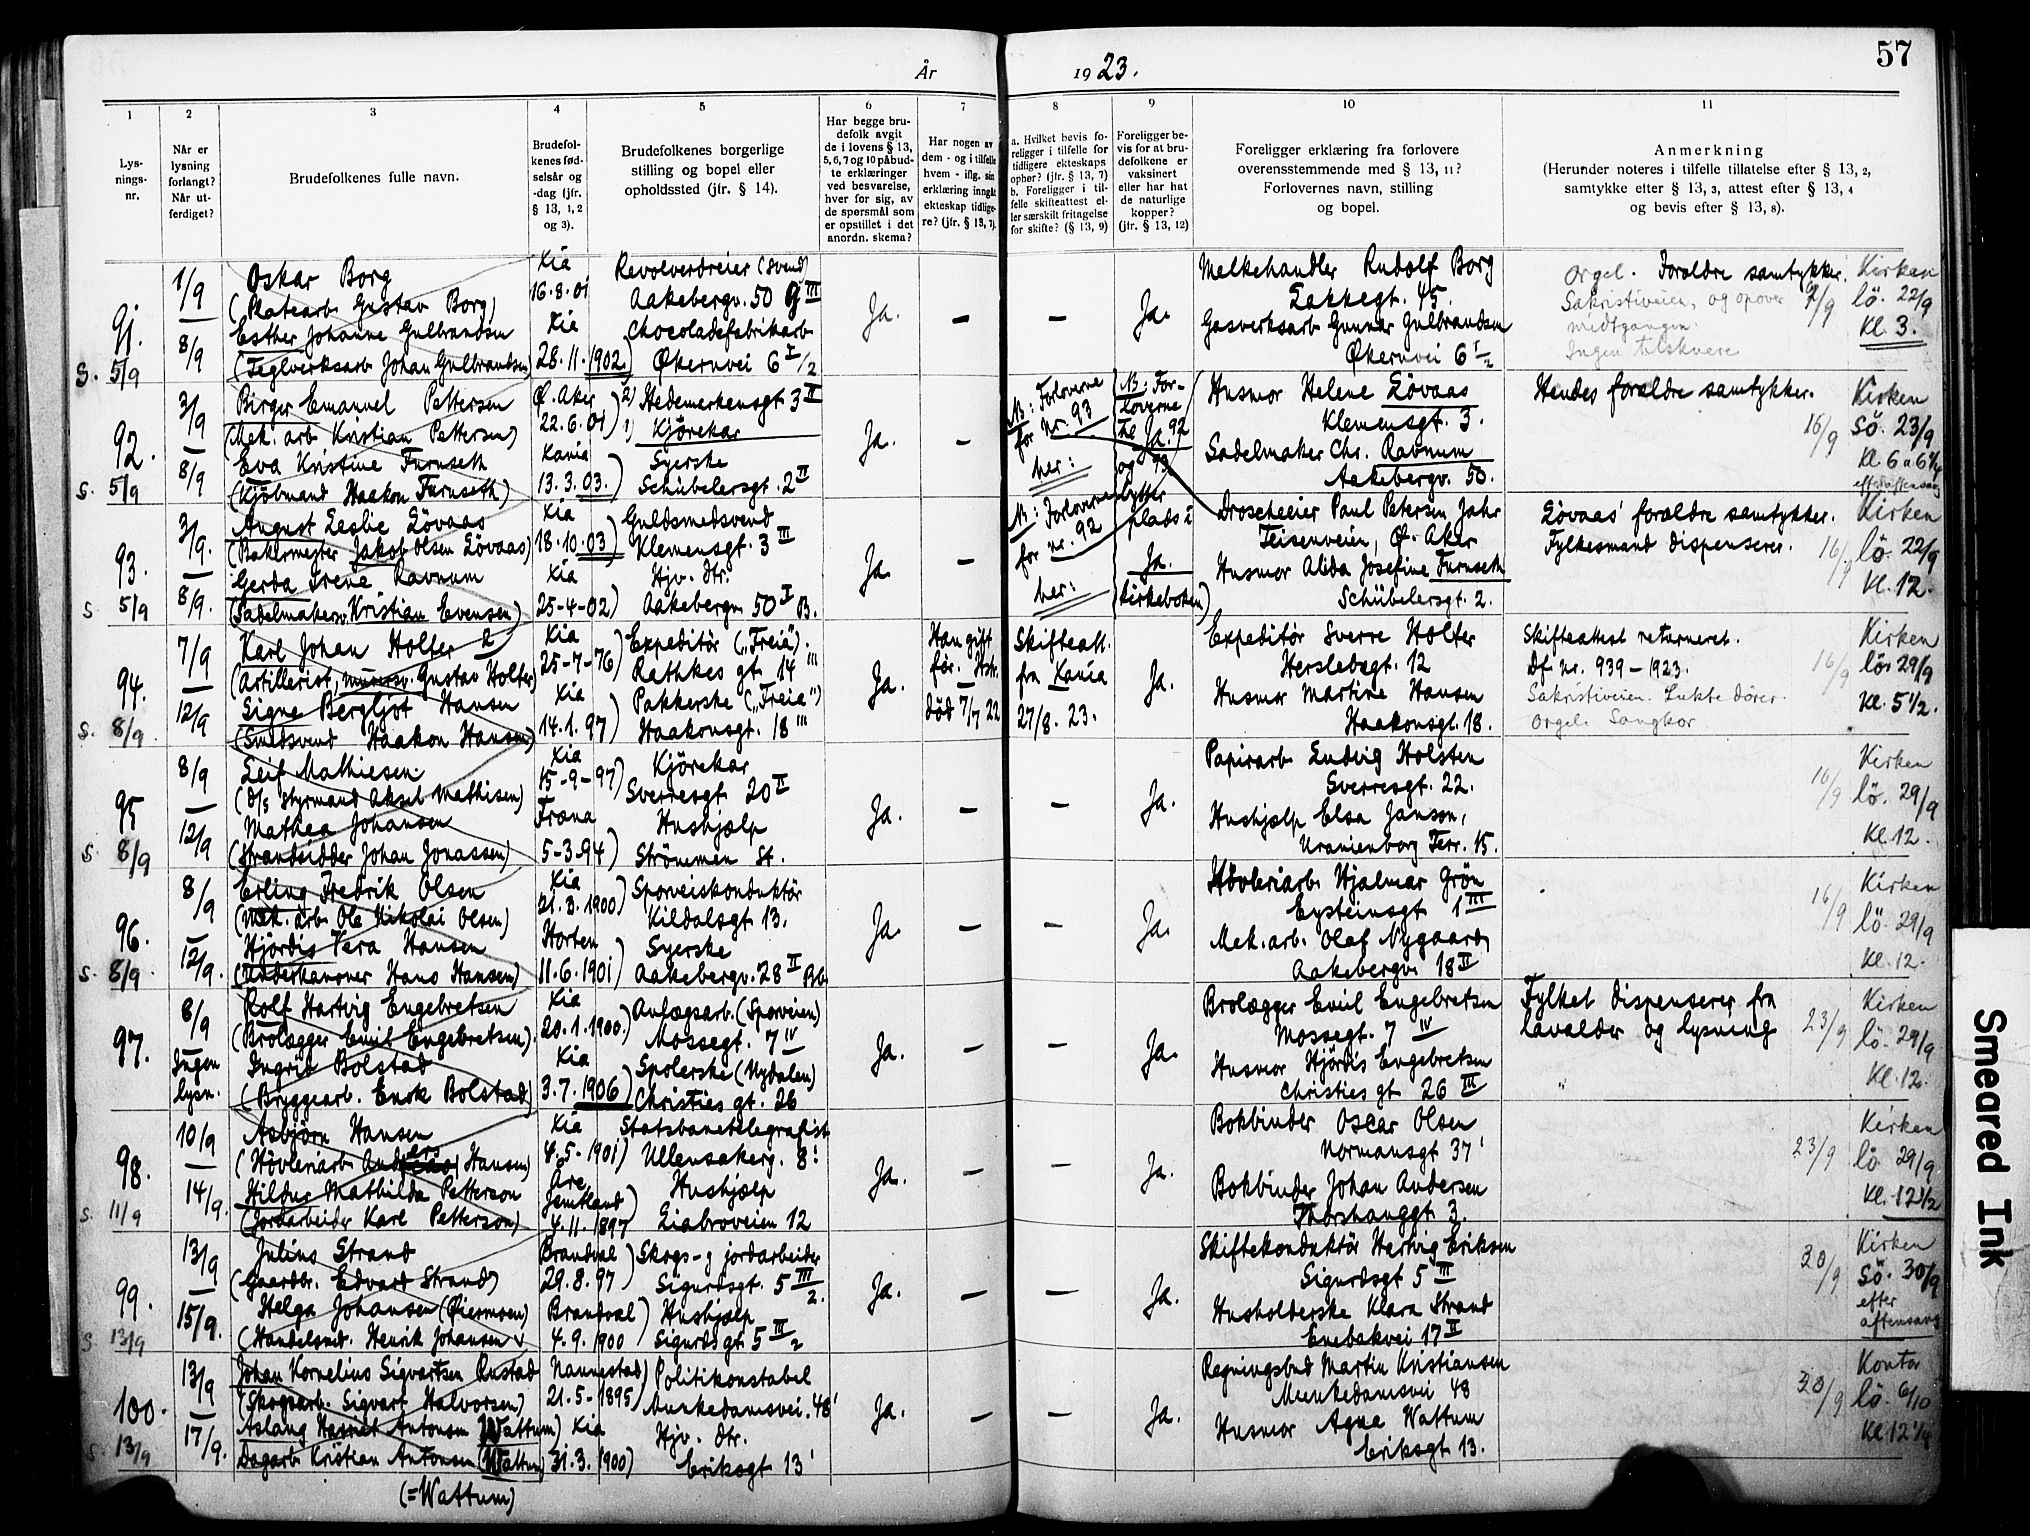 57
År 1923.
1 2 3 4 5 6 7 8 9 10 11
Lys-
nings-
nr.
Når er
lysning
forlangt?
Når ut-
ferdiget?
Brudefolkenes fulle navn.
Brudefol-
kenes fød-
selsår og
-dag (jfr.
§ 13, 1, 2
og 3).
Brudefolkenes borgerlige
stilling og bopel eller
opholdssted (jfr. § 14).
Har begge bru-
defolk avgit
de i lovens § 13,
5, 6, 7 og 10 påbud-
te erklæringer
ved besvarelse,
hver for sig, av
de spørsmål som
er opstillet i det
anordn. skema?
Har nogen av
dem - og i tilfelle
hvem - iflg. sin
erklæring inngåt
ekteskap tidlige-
re? (jfr. § 13, 7).
a. Hvilket bevis fo-
religger i tilfelle for
tidligere ekteskaps
ophør? (jfr. § 13, 7)
b. Foreligger i til-
felle skifteattest el-
ler særskilt fritagelse
for skifte? (§ 13, 9)
Foreligger be-
vis for at bru-
defolkene er
vaksinert
eller har hat
de naturlige
kopper?
(jfr. § 13, 12)
Foreligger erklæring fra forlovere
overensstemmende med § 13, 11?
Forlovernes navn, stilling
og bopel.
Anmerkning
(Herunder noteres i tilfelle tillatelse efter § 13, 2,
samtykke efter § 13, 3, attest efter § 13, 4
og bevis efter § 13, 8).
91.
S. 5/9
1/9
8/9
Oskar Borg
(Platearb. Gustav Borg)
Esther Johanne Gulbrandsen
(Teglverksarb. Johan Gulbrandsen)
Kia
16.8.01
Kia
28.11.1902)
Revolverdreier (svend)
Aakebergv. 50 g III
Chocoladefabrikarb
Økernvei 6 I/2
Ja.
—
—
Ja.
Melkehandler Rudolf Borg
Lakkegt. 45.
Gasverksarb Gunnar Gulbrandsen
Økernvei 6 I/2
Orgel. Forældre samtykker.
Sakristiveien, og opover
midtgangen.
Ingen tilskuere
9/9
Kirken
lö. 22/9
Kl. 3.
92.
S. 5/9
3/9
8/9
Birger Emanuel Pettersen
(Mek. arb Kristian Pettersen)
Eva Kristine Furuseth
(Kjöbmand Haakon Furuseth)
Ø. Aker
22.6.01)
Kania
13.3.03.)
2) Hedemerkensgt 3 II
1) Kjörekar
Syerske
Schübelersgt. 2 II
Ja.
—
NB: Forloverne
for nr. 93
her:
NB: For-
loverne
til 92
Ja.
og 93
bytter
plads
Husmor Helene Lövaas
Klemensgt. 3.
Sadelmaker Chr. Ravnum
Aakebergv. 50.
Hendes forældre samtykker.
16/9
Kirken
Sö. 23/9
Kl 6 a 6 1/4
efter aftensang
93.
S 5/9
3/9.
8/9.
August Leslie Lövaas
(Bakermester Jakob Olsen Lövaas)
Gerda Irene Ravnum
(Sadelmakersv. Kristian Evensen)
Kia
18.10.03)
Kia
25-4-02)
Guldsmedsvend
Klemensgt. 3 III
Hjv. dtr.
Aakebergv 50 I B.
Ja.
—
NB: Forloverne
for nr. 92
her:
Ja.
(kirkeboken)
Droscheeier Paul Petersen Jahr
Teisenveien, Ø. Aker
Husmor Alida Josefine Furuseth
Schübelersgt. 2.
Lövaas' forældre samtykker.
Fylkesmand dispenserer.
16/9
Kirken
lö. 22/9
Kl. 12.
94.
S. 8/9
7/9
12/9
Karl Johan Holter
(Artillerist, murersv. Gustav Holter)
Signe Bergljot Hansen
(Smedsvend Haakon Hansen)
Kia
25-7-76)
Kia
14.1.97)
Expeditör („Freia").
Rathkes gt. 14 III
Pakkerske („Freia")
Haakonsgt. 18 III
Ja.
Han gift
før. Hstr.
död 7/7 22
Skifteatt.
fra Kania
27/8. 23.
Ja.
Expeditör Sverre Holter
Herslebsgt. 12
Husmor Martine Hansen
Haakonsgt. 18.
Skifteattest returneret.
Df. nr. 939 – 1923.
Sakristiveien. Lukte dører.
Orgel. Sangkor
16/9
Kirken
lör 29/9
Kl. 5 1/2.
95
S. 8/9
8/9
12/9
Leif Mathiesen
(D/s styrmand Aksel Mathisen)
Mathea Johansen
(Strandsidder Johan Jonassen)
Kia
15-9-97)
Fræna
5-3-94)
Kjörekar
Sverresgt 20 II
Hushjælp
Strömmen St.
Ja.
—
—
Ja.
Papirarb Ludvig Holsten
Sverresgt. 22.
Hushjælp Elsa Janson,
Uranienborg Terr. 15.
16/9
Kirken
lö. 29/9
Kl. 12.
96.
S. 8/9
8/9
12/9.
Erling Fredrik Olsen
(Mek. arb Ole Nikolai Olsen)
Hjördis Vera Hansen
(Underkanoner Hans Hansen)
Kia
21.3.1900)
Horten
11.6.1901)
Sporveiskonduktör
Kildalsgt 13.
Syerske
Aakebergv. 28 II Bb.
Ja.
—
—
Ja.
Hövleriarb Hjalmar Grön
Eysteinsgt 1 III
Mek. arb. Olaf Nygaard,
Aakebergv. 18 II
16/9
Kirken
lö. 29/9
Kl. 12.
97.
8/9
Ingen
lysn.
Rolf Hartvig Engebretsen
(Brolægger Emil Engebretsen).
Ingrid Bolstad
(Bryggearb. Enok Bolstad)
Kia
20.1.1900.)
Kia
3.7.1906)
Anlægsarb. (Sporveien)
Mossegt. 7 IV
Spolerske (Nydalen)
Christies gt. 26
Ja.
—
—
Ja.
Brolægger Emil Engebretsen
Mossegt. 7 IV
Husmor Hjördis Engebretsen
Christies gt 26 III
Fylket dispenserer fra
lavalder og lysning
23/9
Kirken
lö. 29/9
Kl. 12.
98.
S. 11/9
10/9
14/9.
Asbjörn Hansen
(Hövleriarb Anders Hansen)
Hildur Mathilda Petterson
(Jordarbeider Karl Petterson)
Kia
4.5-1901)
Åre
Jemtland)
4.11.1897
Statsbanetelegrafist
Ullensakerg. 8!
Hushjælp
Liabroveien 12
Ja.
—
—
Ja.
Bokbinder Oscar Olsen
Normansgt 37 I
Bokbinder Johan Andersen
Thorshauggt 3.
23/9
Kirken
lö 29/9
Kl. 12 1/2
99.
S 13/9
13/9
15/9.
Julius Strand
(Gaardbr. Edvard Strand)
Helga Johansen (Øiermoen)
(Handelsmd. Henrik Johansen
Brandval)
29.8.97)
Brandval)
4.9.1900
Skogs- g jordarbeider
Sigurdsgt. 5 III/2.
Hushjelp
Sigurdsgt 5 III/2
Ja.
—
—
Ja.
Skiftekonduktör Hartvig Eriksen
Sigurdsgt 5 III
Husholderske Klara Strand
Enebakvei 17 II
30/9
Kirken
Sö. 30/9
efter
aftensang
100.
S. 13/9
13/9
17/9.
Johan Kornelius Sigvartsen Rustad
(Skogsarb. Sigvart Halvorsen)
Aslaug Harriet Antonsen Wattum)
Dagarb Kristian Antonsen (Wattum)
(=Wattum)
Nannestad)
21.5-1895)
Kia
31.3.1900)
Politikonstabel
Munkedamsvei. 48 I
Hjv. dtr.
Eriksgt 13 I
Ja.
—
—
Ja.
Regningsbud Martin Kristiansen
Munkedamsvei 48
Husmor Agna Wattum
Eriksgt 13.
30/9
Kontor
lö. 6/10
Kl 12 1/4
Smeared Ink